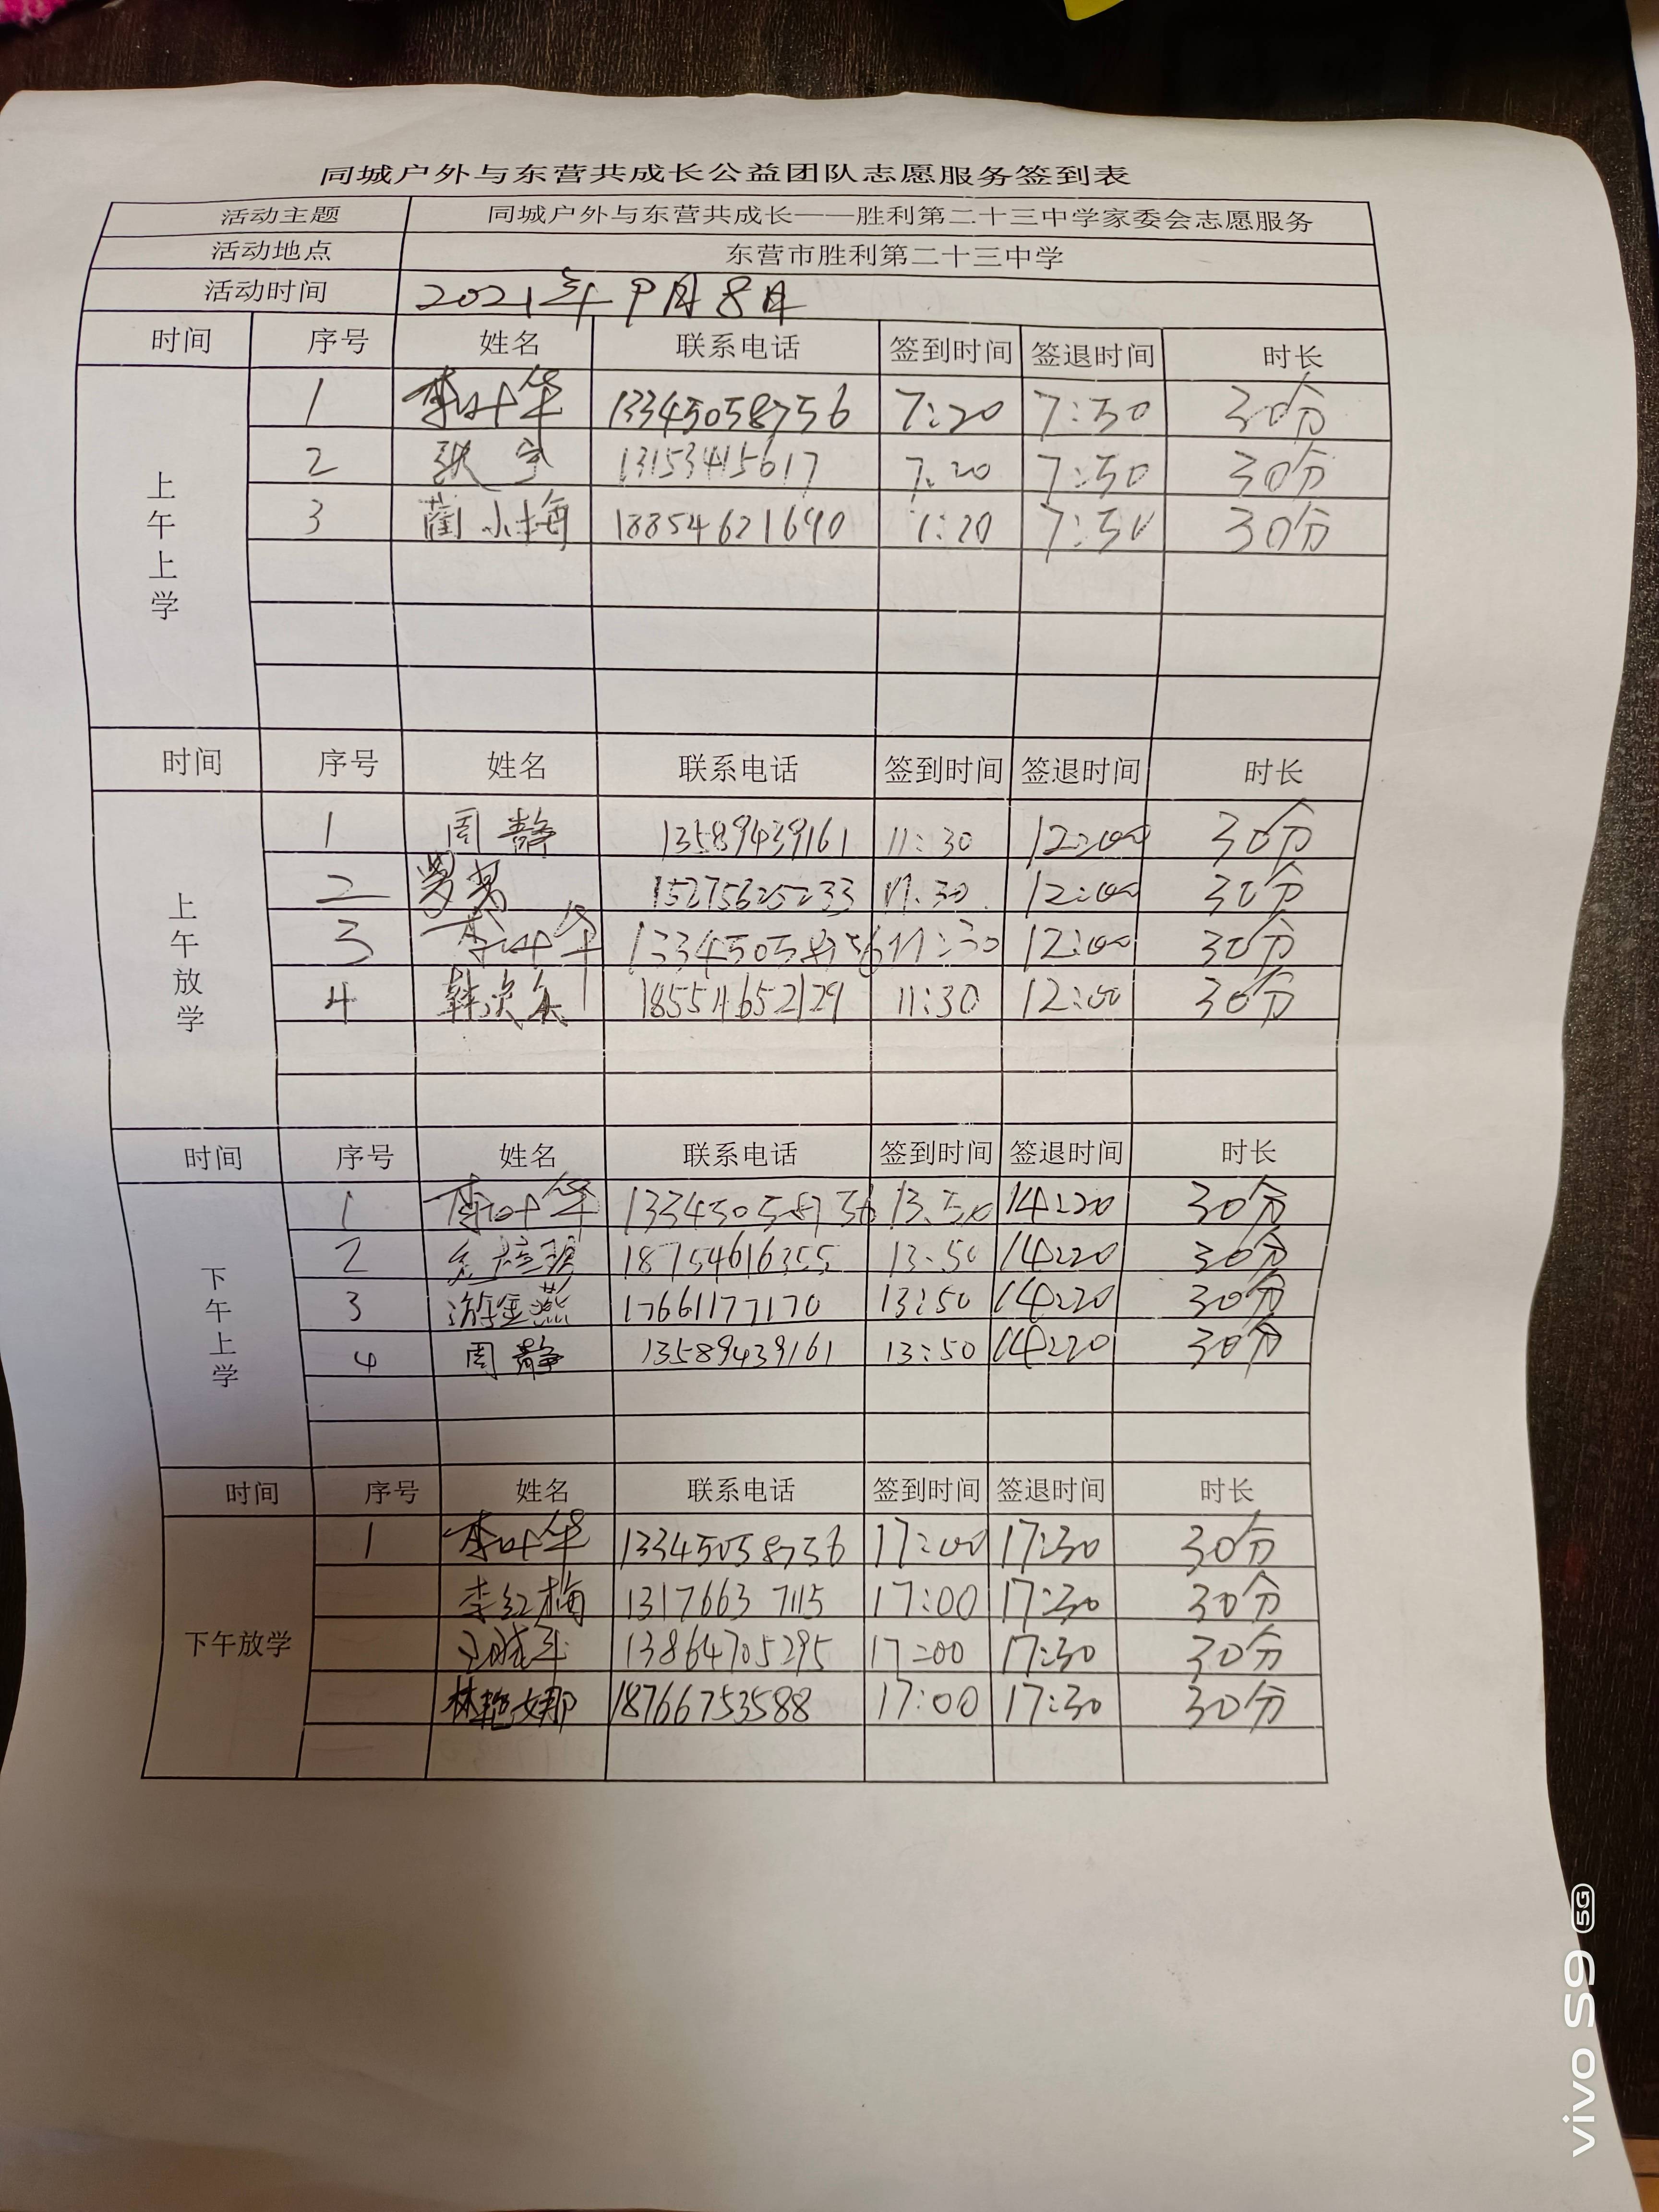 同城户外与东营共成长公益团队志愿服务签到表
活动主题 同城户外与东营共成长——胜利第二十三中学家委会志愿服务
活动地点 东营市胜利第二十三中学
活动时间 2021年9月8日
时间 序号 姓名 联系电话 签到时间 签退时间 时长
上午上学 1 李叶华 13345058756 7:20 7:50 30分
2 张宇 13153415617 7:20 7:50 30分
3 蔺小梅 18854621690 7:20 7:50 30分
时间 序号 姓名 联系电话 签到时间 签退时间 时长
上午放学 1 周静 13589439161 11:30 12:00 30分
2 15275625233 11:30 12:00 30分
3 李叶华 13345058756 11:30 12:00 30分
4 韩 18554652129 11:30 12:00 30分
时间 序号 姓名 联系电话 签到时间 签退时间 时长
下午上学 1 李叶华 13345058756 13:50 14:20 30分
2 18754616355 13:50 14:20 30分
3 游金燕 17661177170 13:50 14:20 30分
4 周静 13589439161 13:50 14:20 30分
时间 序号 姓名 联系电话 签到时间 签退时间 时长
下午放学 1 李叶华 13345058756 17:00 17:30 30分
李红梅 13176637115 17:00 17:30 30分
13864705295 17:00 17:30 30分
林艳娜 18766753588 17:00 17:30 30分
vivo S9 5G